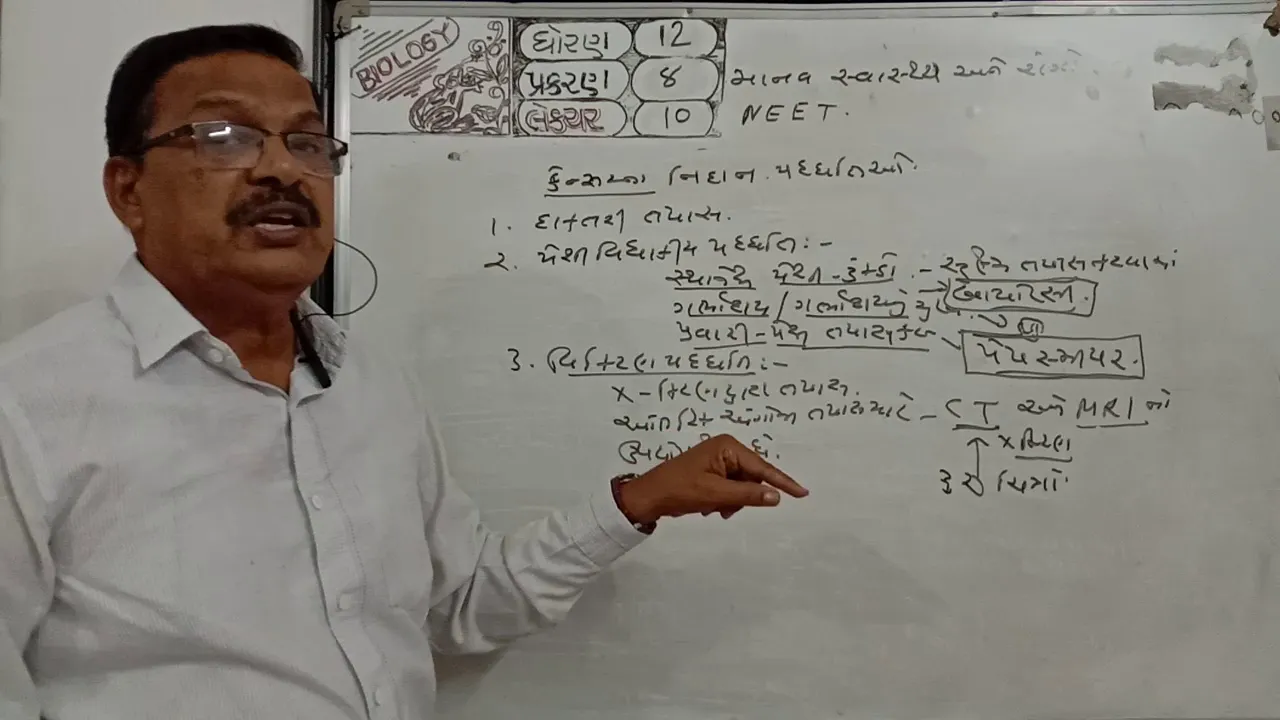 BIOLOGY
ધોરણ 12
પ્રકરણ 8 માનવ સ્વાસ્થ્ય અને
લેક્ચર 10 NEET.
કેન્સરના નિદાન પદ્ધતિઓ.
1. દાક્તરી તપાસ.
૨. પેશીવિદ્યાકીય પદ્ધતિ:-
સ્થાનિક પેશી - ટુકડો. -
ગર્ભાશય / ગર્ભાશયનું મુખ → બાયોપ્સી.
પ્રવાહી - પેશી
પેપસ્મીયર.
3. વિકિરણ પદ્ધતિ:-
X - કિરણ દ્વારા તપાસ.
આંતરિક અંગોની તપાસ માટે - CT અને MRI નો
X કિરણ
ચિત્રો